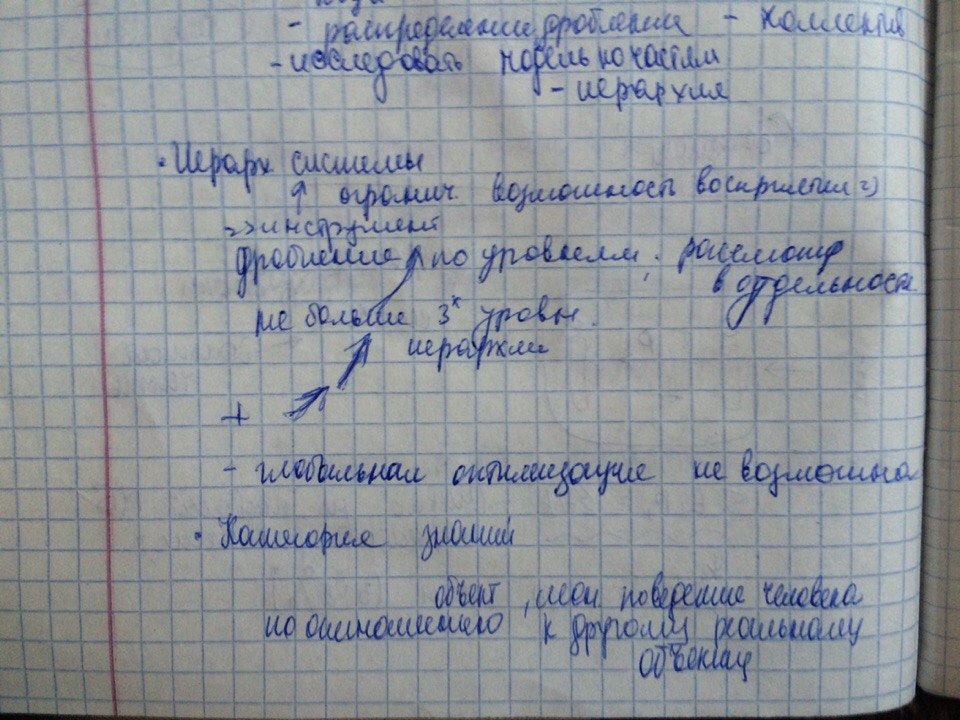 - распределение дробления - коллектив
- исследовать модель по частям
- иерархия
• Иерарх системы
↑ огранич возможность восприятия =>
=> инструмент
дробление по уровням, рассмотр
в отдельности
не больше 3х уровн.
иерархии
+
- глобальная оптимизация не возможна
• Категория знаний
объект, поведение человека
по отношению к другому реальному
объекту